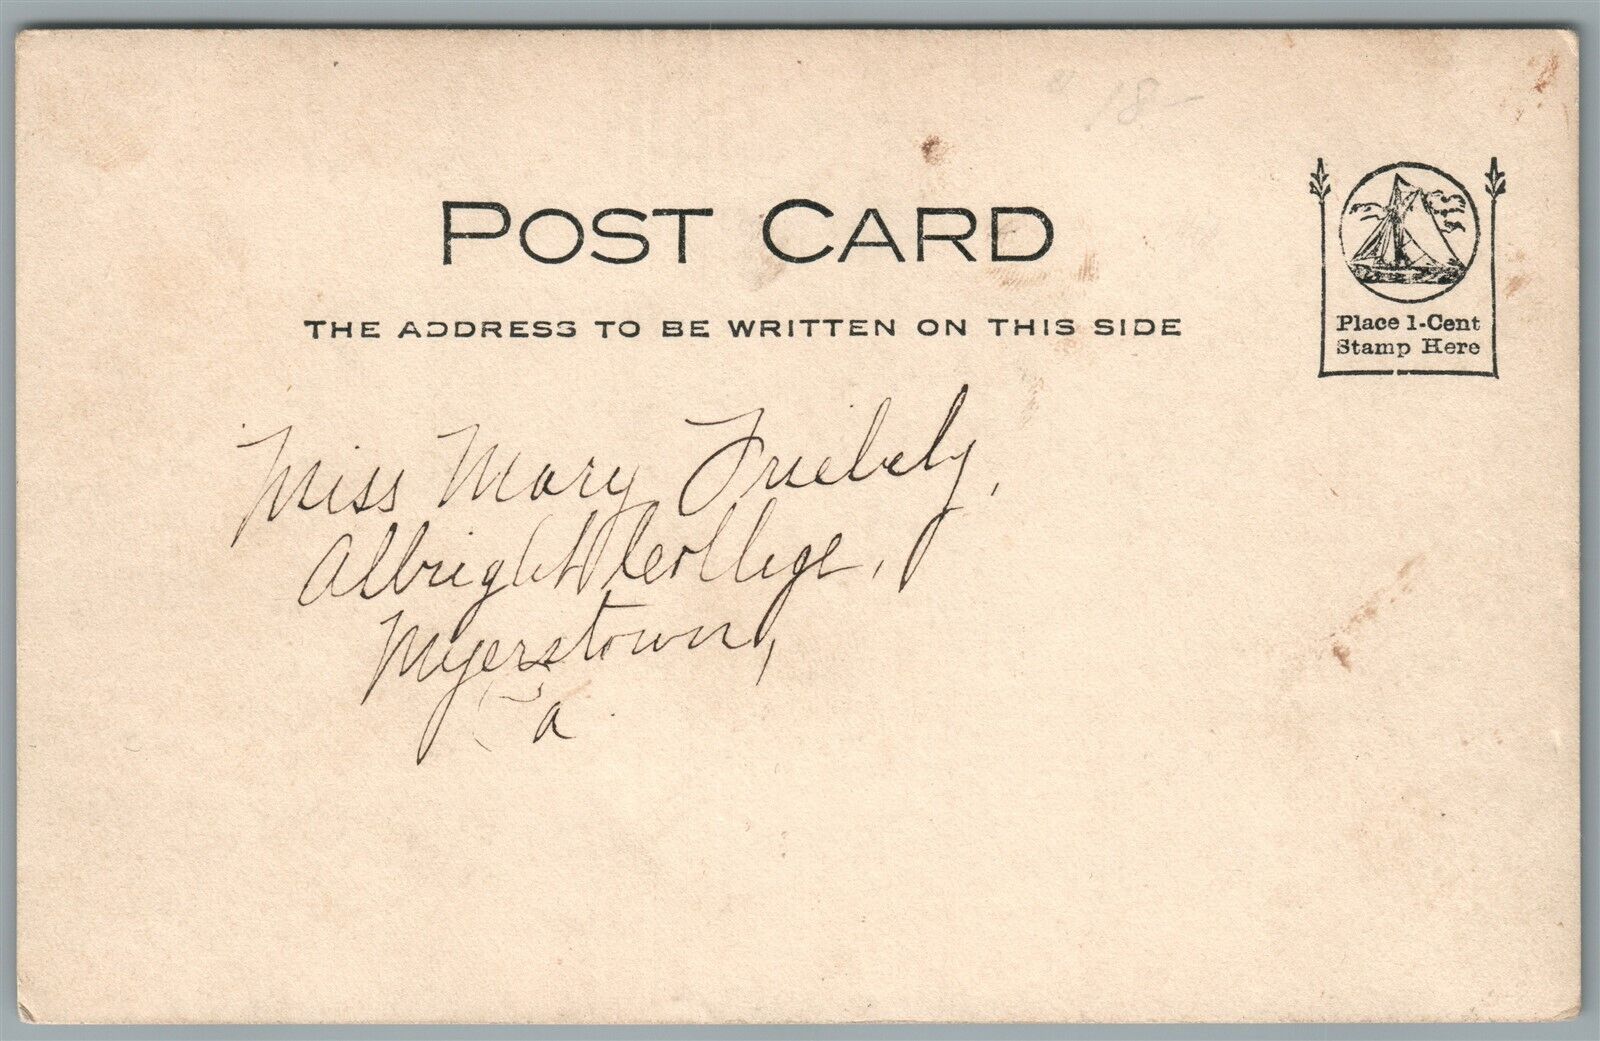 18-
POST CARD
THE ADDRESS TO BE WRITTEN ON THIS SIDE
Place 1-Cent
Stamp Here
Miss Mary Friebely,
Albright College,
Myerstown,
Pa